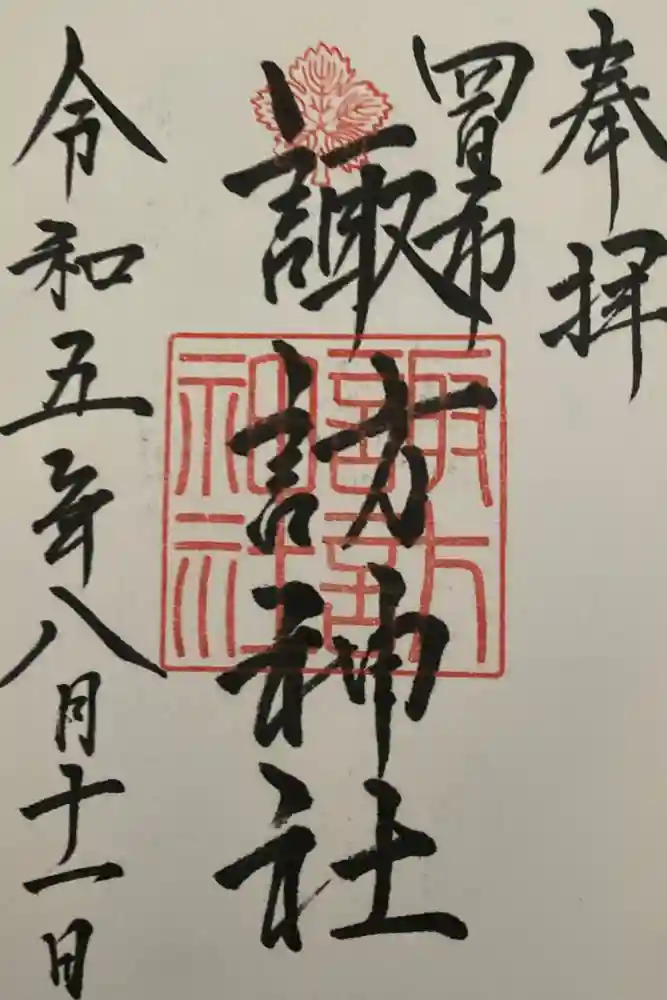 奉拝
四日市
諏訪神社
諏訪神社
令和五年八月十一日